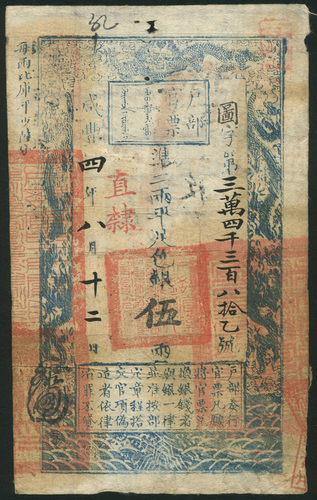 戶部
官票
圖字第三萬四千三百八拾乙號
準二兩平足色銀伍兩
直隸
咸豐四年八月十二日
戶部奏行
官票凡願
將官票兌
換銀錢者
與銀一律
並准按部
定章程搭
交官項偽
造者依律
治罪不貸